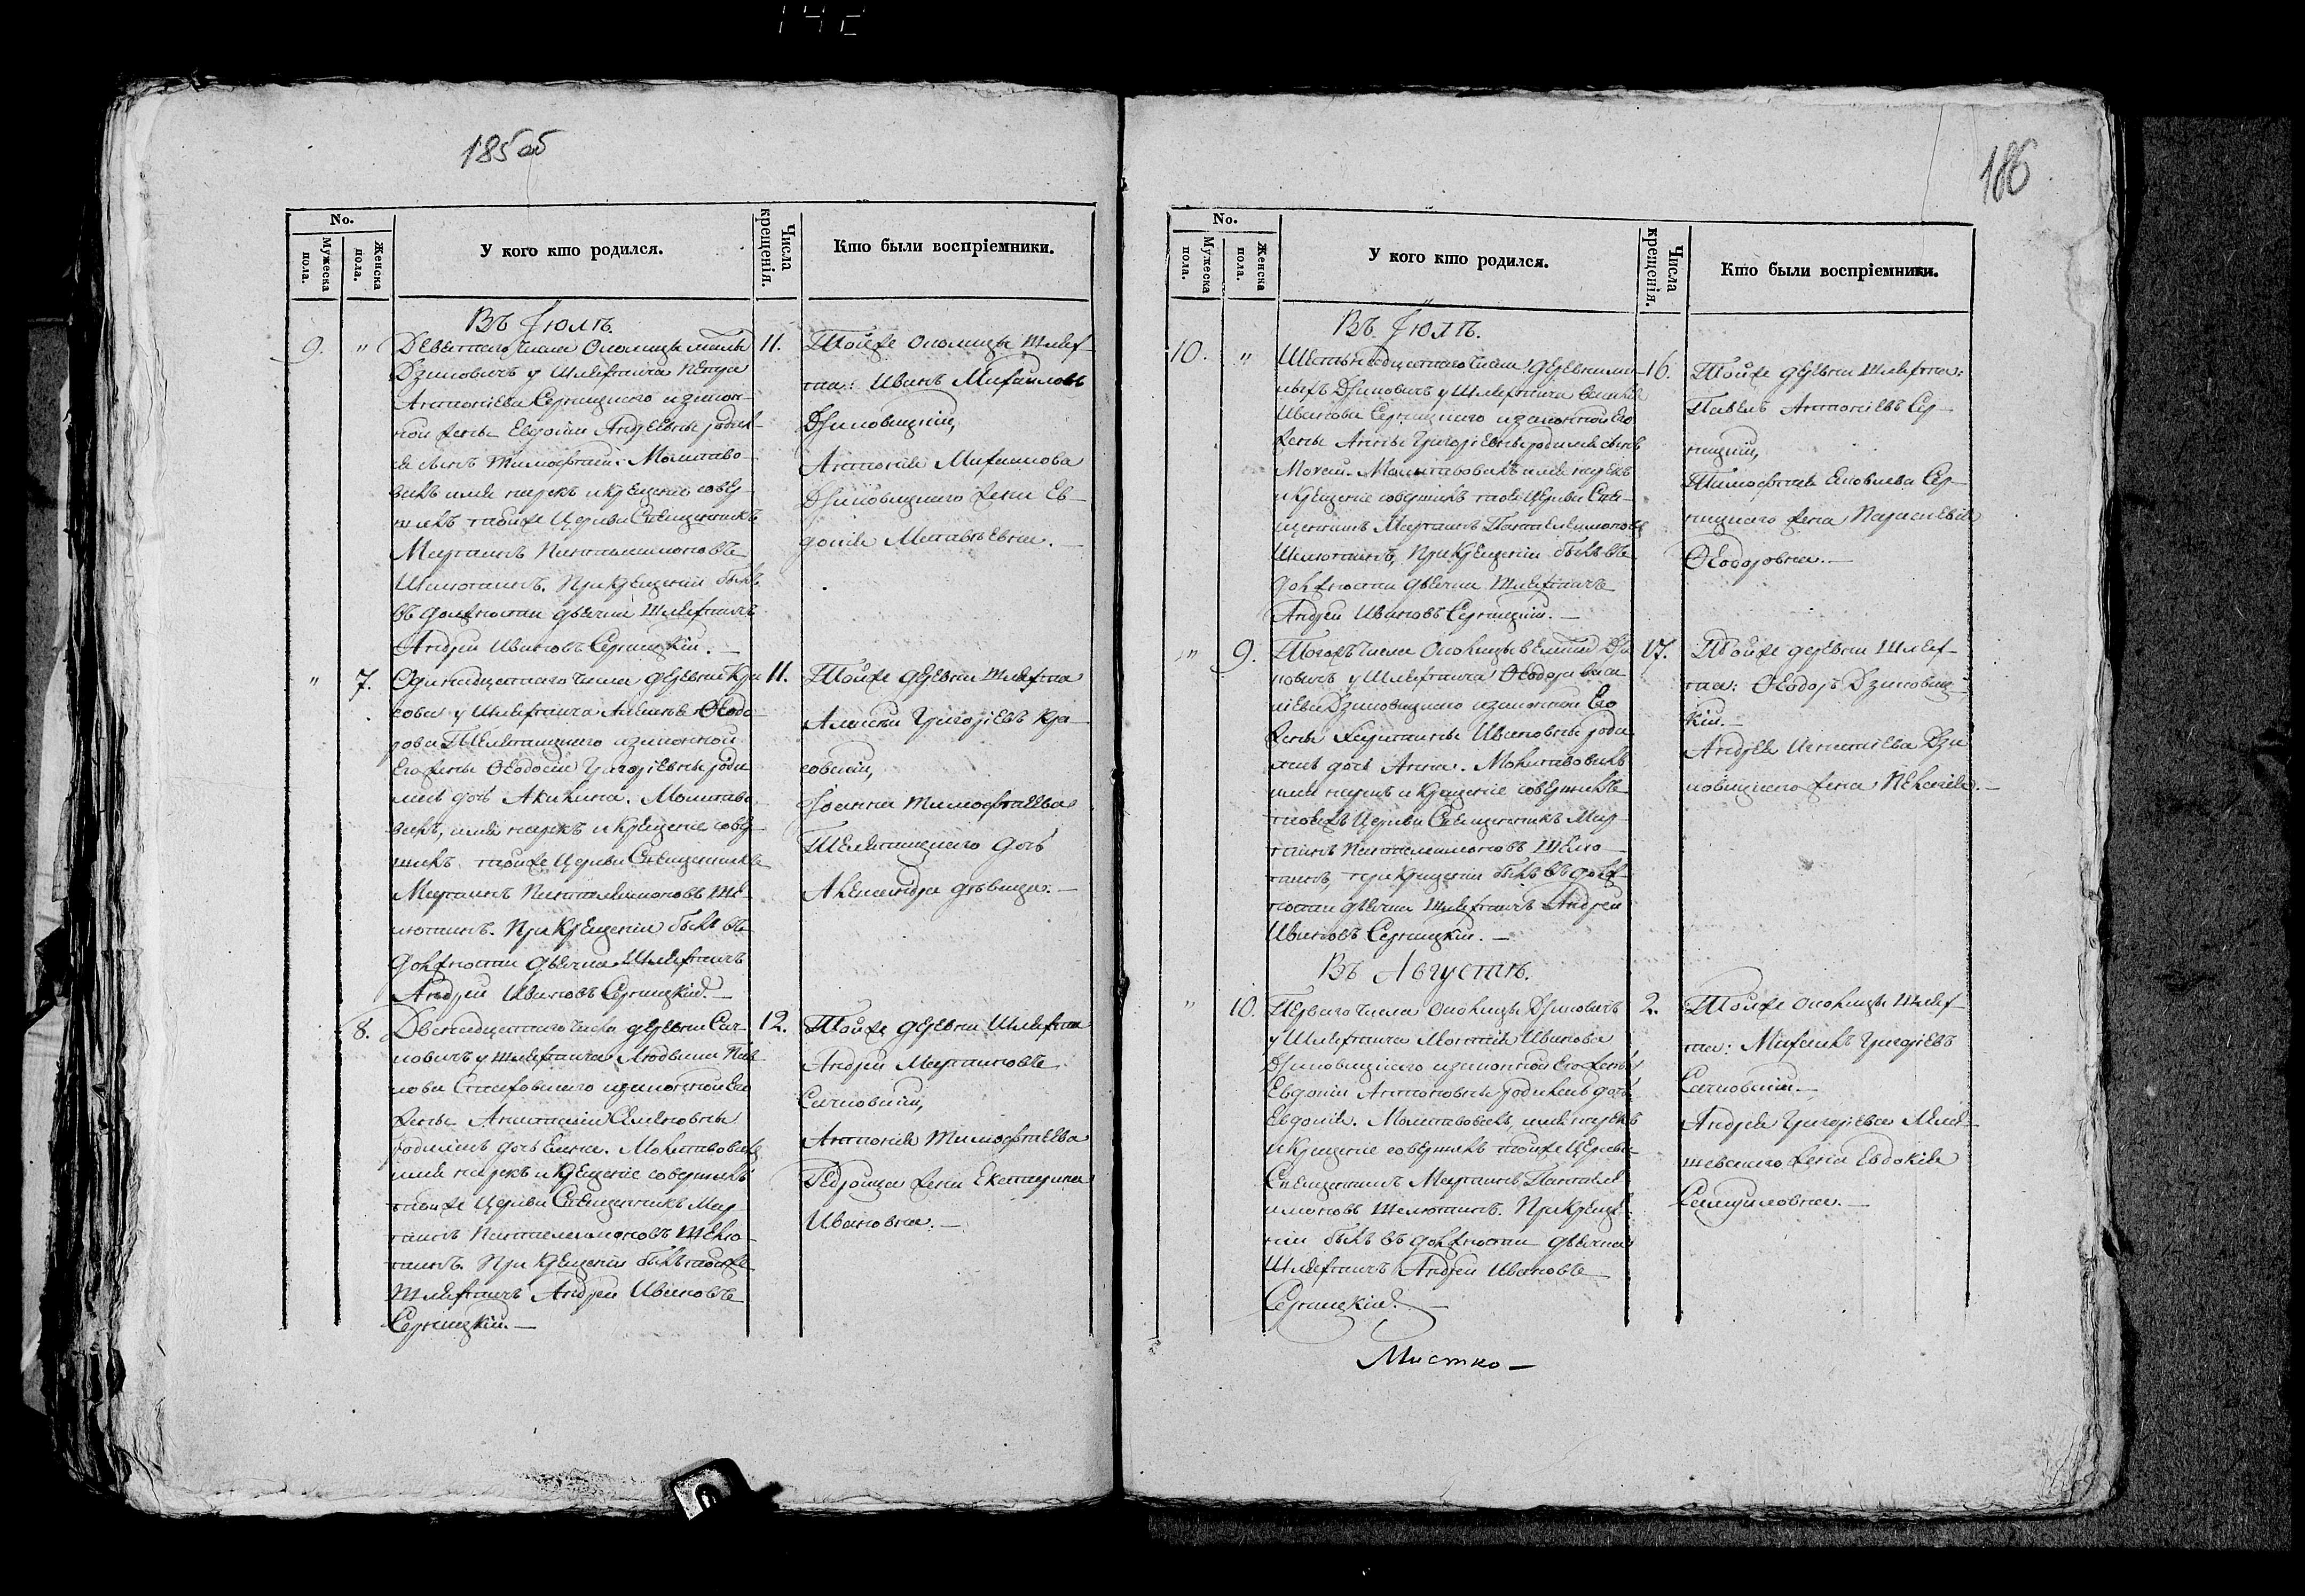 185 об
No.
Мужеска пола.
Женска пола.
У кого кто родился.
Числа крещенія.
Кто были воспріемники.
Въ Іюлѣ.
9. " Девятаго числа Околицы малы 11.
Дзиковичъ у Шляхтича Петра
Антоніева Серницкаго и закон-
ной жены Евдокіи Андреевны родил-
ся сынъ Тимофтей. Молитво-
валъ имя нарекъ и крещеніе совер-
шилъ тойже Церкви Священникъ
Мартинъ Пантелимоновъ
Шелютинъ. При крещеніи былъ
въ должности дьячка Шляхтичъ
Андрей Ивановъ Серницкій. —
Тойже Околицы Шлях-
тич: Иванъ Михайловъ
Дзиковицкій,
Антонія Михайлова
Дзиковицкаго жена Ев-
докія Матвѣевна. —
" 7. Одинадцатаго числа деревни Кра 11.
сова у Шляхтича Ѳеодо-
рова Шелютицкаго и законной
Его жены Ѳеодосіи Григоріевны роди
лась дочь Акилина. Молитво
валъ, имя нарекъ и крещеніе совер-
шилъ тойже Церкви Священникъ
Мартинъ Пантелимоновъ Ше-
лютинъ. При крещеніи былъ въ
должности дьячка Шляхтичъ
Андрей Ивановъ Серницкій. —
Тойже деревни Шляхтич
Алексѣй Григоріевъ Кра-
совскій,
Іоанна Тимофтѣева
Шелютицкаго дочь
Александра дѣвица. —
8. Двенадцатаго числа деревни Сач- 12.
ковичъ у Шляхтича Людвика Пав
лова Стаховскаго и законной Его
жены Анастасіи Семеновны
родилась дочь Елена. Молитвовалъ
имя нарекъ и крещеніе совершилъ
тойже Церкви Священникъ Мар-
тинъ Пантелимоновъ Шелю-
тинъ. При крещеніи былъ тойже
Шляхтичъ Андрей Ивановъ
Серницкій. —
Тойже деревни Шляхтич
Андрей Мартиновъ
Сачковскій,
Антонія Тимофтѣева
Федроица жена Екатерина
Ивановна. —
186
No.
Мужеска пола.
Женска пола.
У кого кто родился.
Числа крещенія.
Кто были воспріемники.
Въ Іюлѣ.
10. " Шестьнадцатаго числа деревни ма- 16.
лыхъ Дзиковичъ у Шляхтича
Иванова Серницкаго и законной Его
жены Анны Григоріевны родился сынъ
Мокей. Молитвовалъ имя нарекъ
и крещеніе совершилъ тоей Церкви Свя-
щенникъ Мартинъ Пантелимоновъ
Шелютинъ, при крещеніи былъ въ
должности дьячка Шляхтичъ
Андрей Ивановъ Серницкій. —
Тойже деревни Шляхтич:
Павелъ Антоніевъ Сер-
ницкій,
Тимофтея Яковлева Сер-
ницкаго жена Параскевія
Ѳеодоровна. —
" 9. Тогожъ числа Околицы великихъ Дзи 17.
ковичъ у Шляхтича Ѳеодора Васи
ліева Дзиковицкаго и законной Его
жены Харитины Ивановны роди
лась дочь Анна. Молитвовалъ
имя нарекъ и крещеніе совершилъ
тоейжъ Церкви Священникъ Мар-
тинъ Пантелимоновъ Шелю-
тинъ, при крещеніи былъ въ долж-
ности дьячка Шляхтичъ Андрей
Ивановъ Серницкій. —
Тойже деревни Шлях-
тич: Ѳеодоръ Дзиковиц-
кій. —
Андрея Игнатіева Дзи
ковицкаго жена Пелагія. —
Въ Августѣ.
" 10. Перваго числа Околицы Дзиковичъ 2.
у Шляхтича Иванова
Дзиковицкаго и законной Его жены
Евдокіи Антоновны родилась дочь
Евдокія. Молитвовалъ, имя нарекъ
и крещеніе совершилъ тойже Церкви
Священникъ Мартинъ Пантеле
имоновъ Шелютинъ. При креще-
ніи былъ въ должности дьячка
Шляхтичъ Андрей Ивановъ
Серницкій. —
Тойже Околицы Шлях-
тич: Михаилъ Григоріевъ
Сачковскій. —
Андрея Григоріева
жена Евдокія
Самуиловна. —
Мистко —